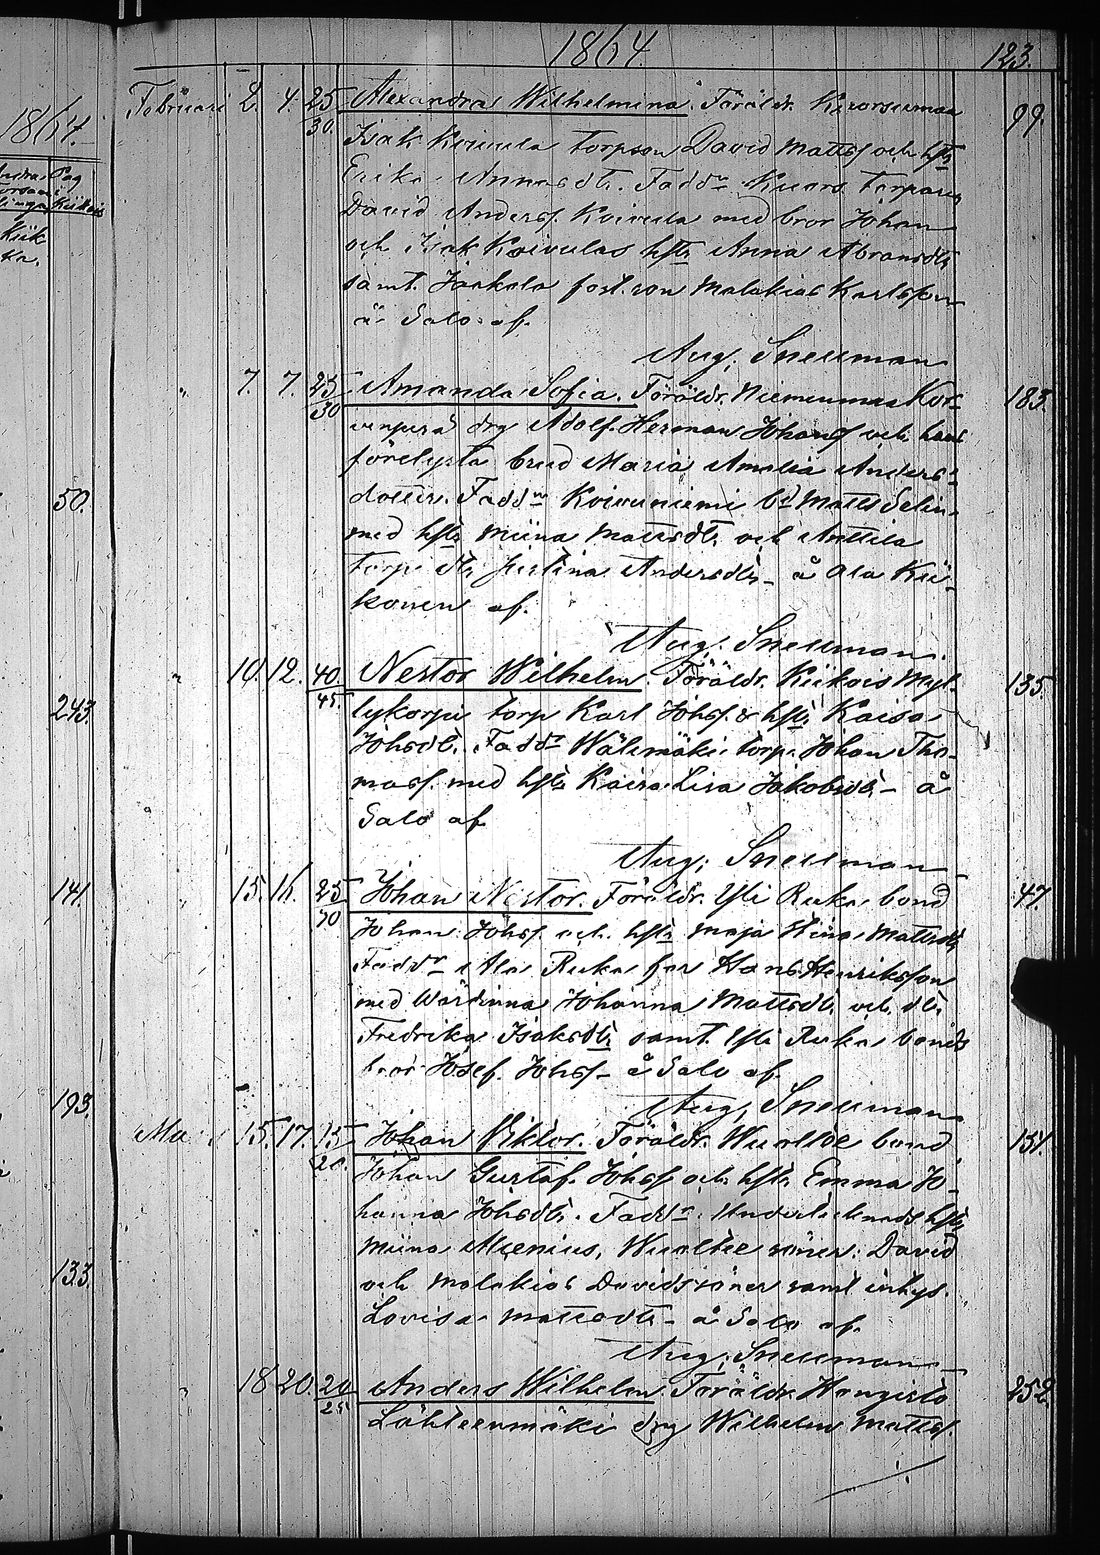 1864.
123.
1864.
Pag
Kiik
ka.
50.
243.
141.
193.
133.
Februari 2. 4. 25/30 Alexandra Wilhelmina. Föräldr.
99.
Isak Koivula torpson David Mattss och hstr
Erika Annasdtr. Faddr Kuoro torparen
David Anderss. Koivula med bror Johan
och Isak Koivulas hstr Anna Abramsdtr
samt Jaakola fost.son Malakias Karlsson
å Salo af.
Aug. Snellman
" 7. 7. 25/30 Amanda Sofia. Föräldr. Kor-
183.
drg Adolf Herman Johanss och hans
förelysta brud Maria Amalia Anders-
dotter. Faddrr Koivuniemi bd Matts Selin
med hstr Miina Mattsdtr och Anttila
torp. dtr Justina Andersdtr - å Ala Kii-
konen af.
Aug. Snellman.
" 10. 12. 40/45. Nestor Wilhelm. Föräldr. Kiikois Myl-
135.
lykorpi torp Karl Johss. & hstr Kaisa
Johsdtr. Faddr Wälimäki torp. Johan Tho-
mass. med hstr Kaisa Lisa Jakobsdtr - å
Salo af
Aug. Snellman
" 15. 16. 25/70 Johan Nestor. Föräldr. Yli Ruka bond
47.
Johan Johss. och hstr Maja Stina Mattsdtr
Faddr Ala Ruka far Hans Henriksson
med wärdinna Johanna Mattsdtr och dtr
Fredrika Isaksdtr samt Yli Ruka bonds
bror Josef Johss - å Salo af.
Aug. Snellman
15. 17. 15/20. Johan Viktor. Föräldr. Wualtee bond
151.
Johan Gustaf Johss och hstr Emma Jo-
hanna Johsdtr. Faddr. Undertecknads hstr
Miina Wualtee söner David
och Malakias Davidssöner samt inhys.
Lovisa Mattsdtr - å Salo af.
Aug. Snellman
" 18 20. 20/25 Anders Wilhelm. Föräldr. Hongisto
252.
Lähteenmäki drg Wilhelm Mattss.